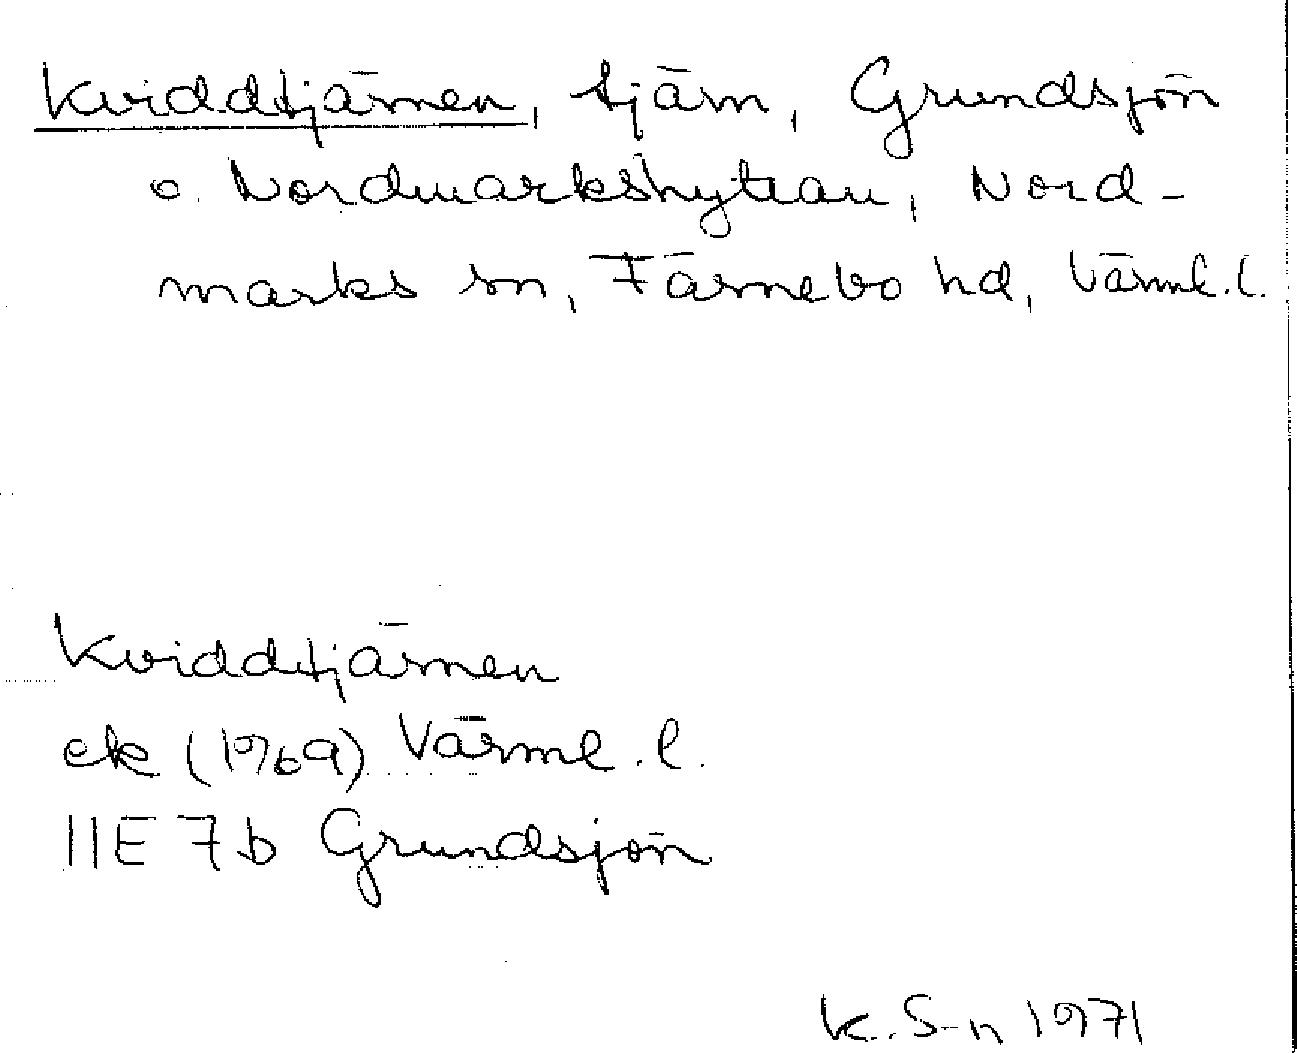 Kviddtjärnen, tjärn, Grundsjön
o. Nordmarkshyttan, Nord-
marks sn, Färnebo hd, Värml. l.
Kviddtjärnen
ek (1969) Värml. l.
11E 7b Grundsjön
K. S-n 1971